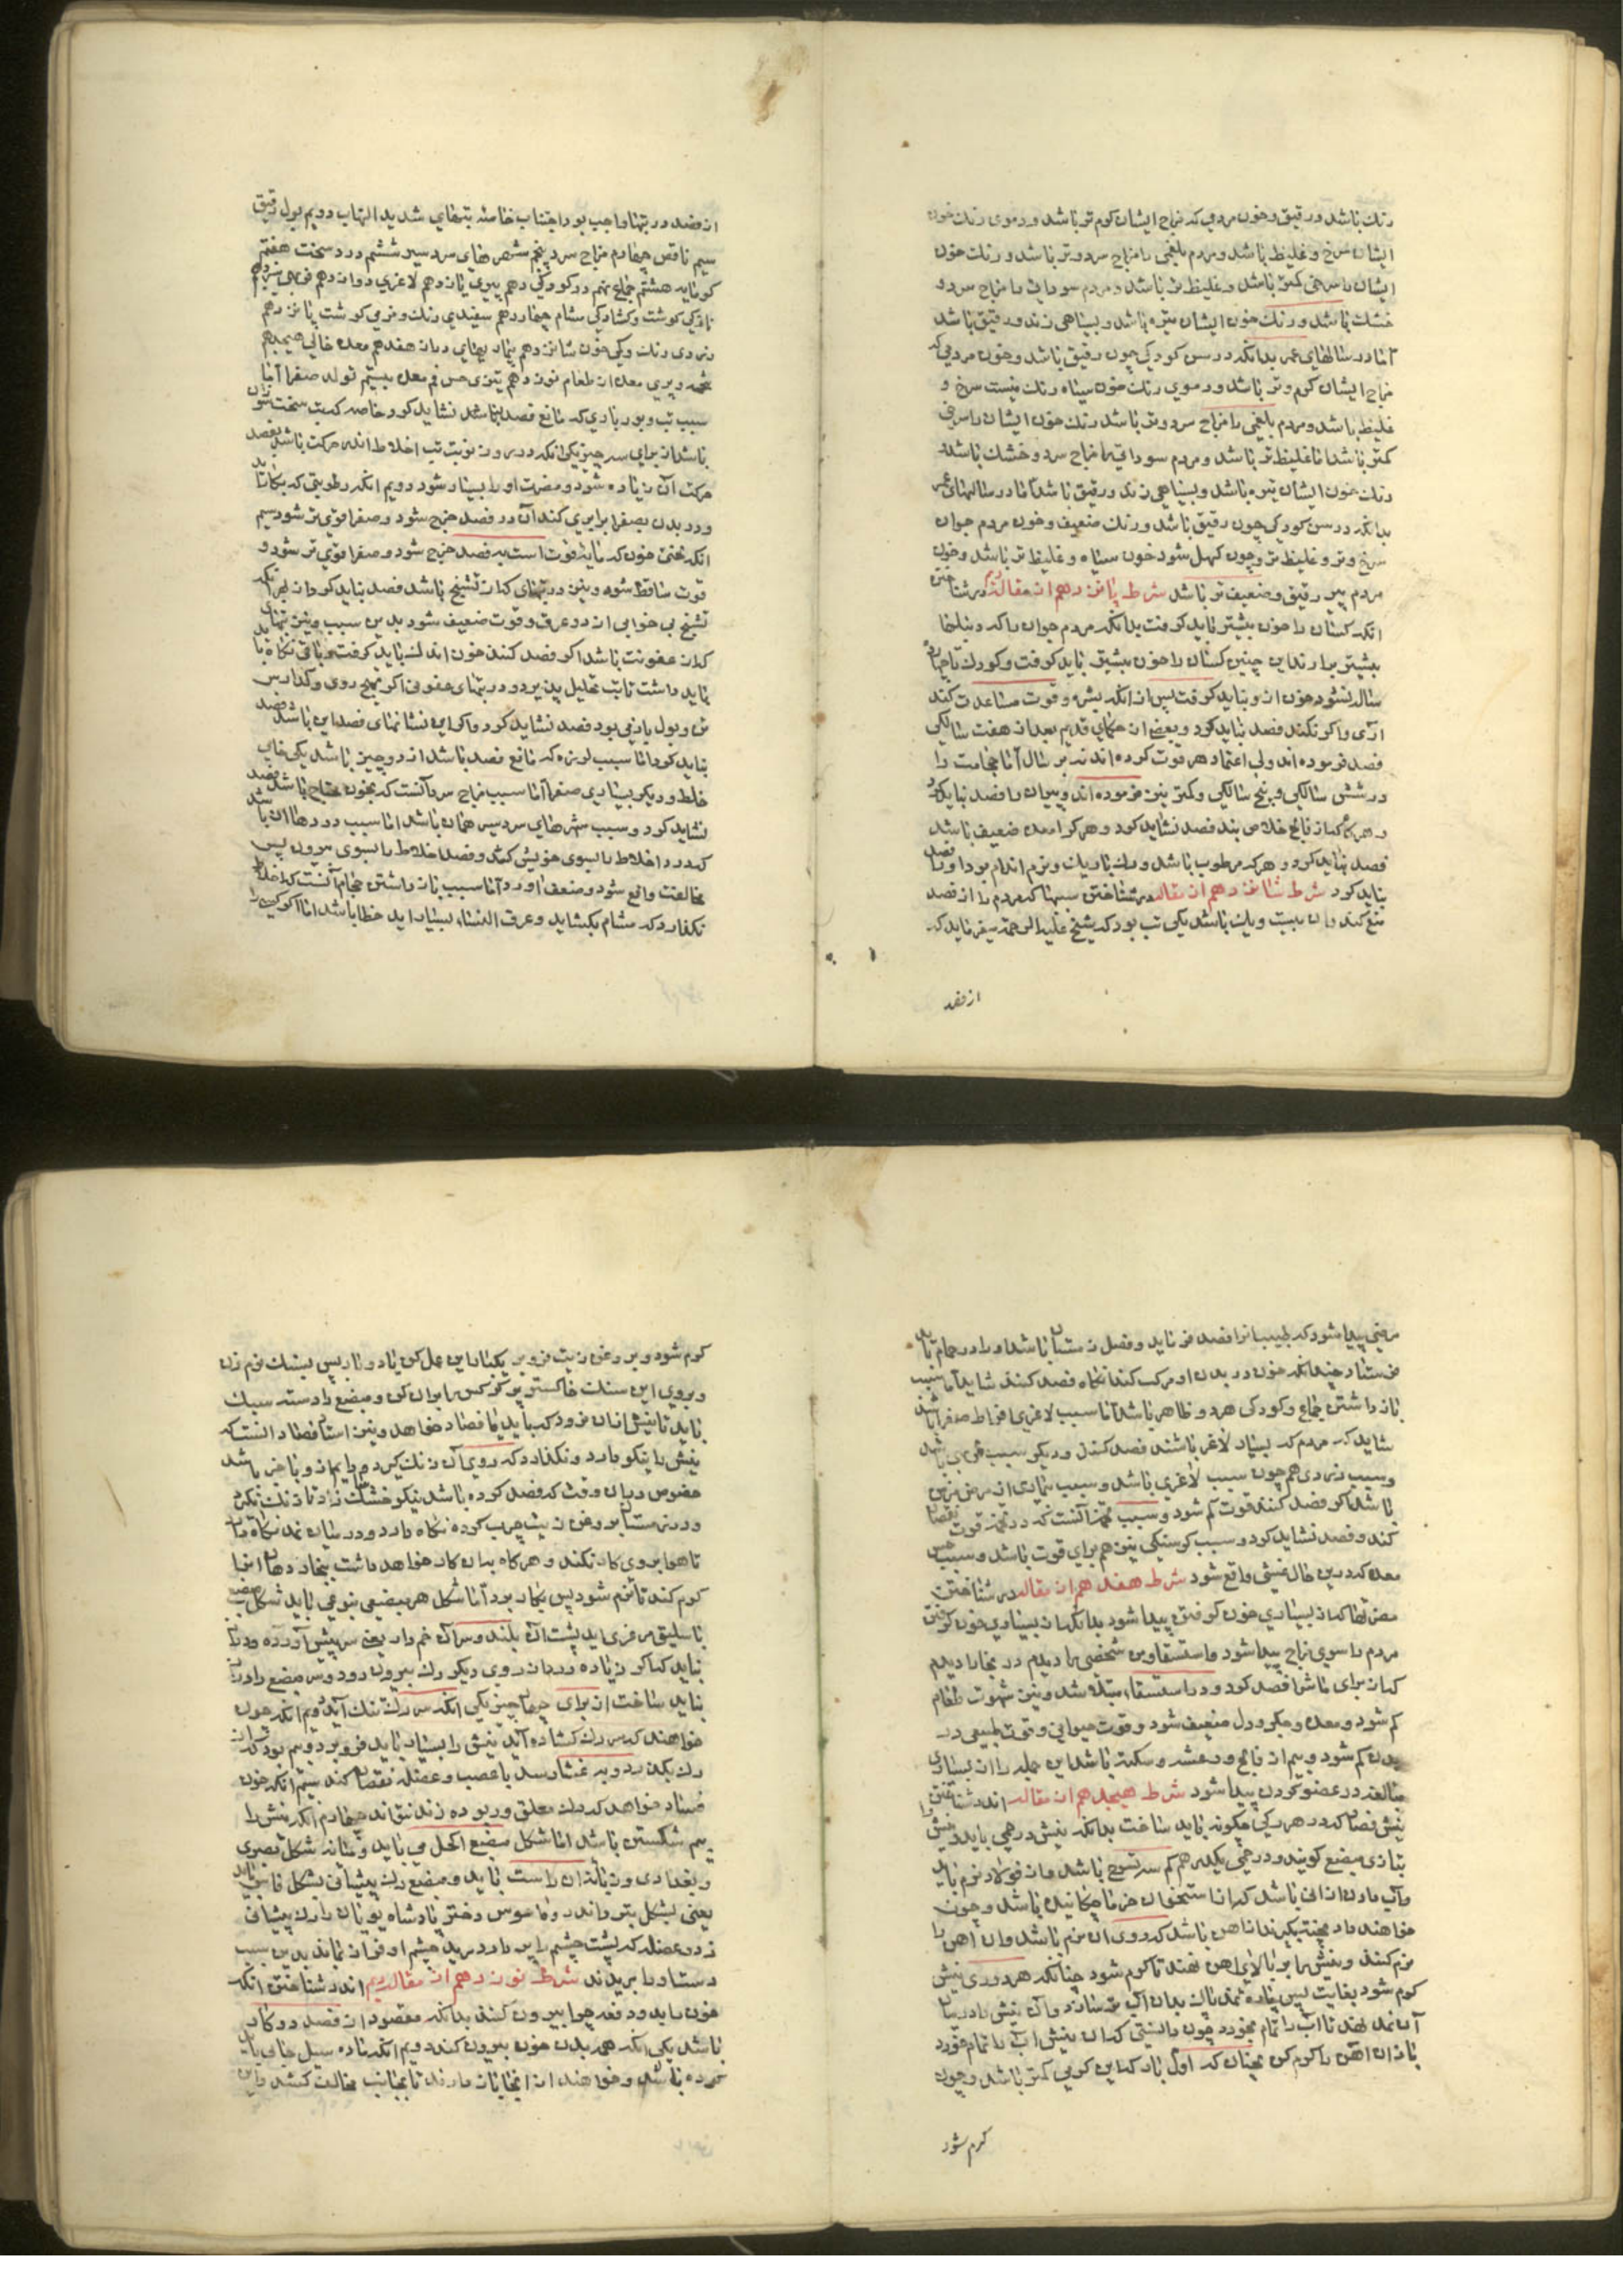 رنك باشد و رقیق و خون مردمی که مزاج ایشان کرم تر باشد و دموی رنك خون
ایشان سرخ و غلیظ باشد و مردم بلغمی را مزاج سرد و تر باشد و رنك خون
ایشان را سرخی کمتر باشد و غلیظ تر باشد و مردم سودایی را مزاج سرد و
خشك باشد و رنك خون ایشان تیره باشد و بسیاهی زند و رقیق باشد
اما در سالهای عمر بدانکه در سن کودکی چون رقیق باشد و خون مردمی که
مزاج ایشان کرم و تر باشد و دموی رنك خون سیاه رنك نیست سرخ و
غلیظ باشد و مردم بلغمی را مزاج سرد و تر باشد رنك خون ایشان را سرخی
کمتر باشد اما غلیظ تر باشد و مردم سودایی را مزاج سرد و خشك باشد و
رنك خون ایشان تیره باشد و بسیاهی زند و رقیق باشد اما در سالهای عمر
بدانکه در سن کودکی چون رقیق باشد و رنك ضعیف و خون مردم جوان
سرخ و تر و غلیظ تر و چون کهل شود خون سیاه و غلیظ تر باشد و خون
مردم پیر رقیق و ضعیف تر باشد شرط پانزدهم از مقاله دویم در شناختن
انکه کسان را خون بیشتر باید کرفت بدانکه مردم جوان را که دنبلها
بیشتر برارند این چنین کسان را خون بیشتر باید کرفت و کودك تا چهارده
ساله نشود خون از و نباید کرفت پس از انکه بیش و قوت مساعدت کند
اری و اکر نکند فصد نباید کرد و بعضی از حکمای قدیم بعد از هفت سالکی
فصد فرموده اند ولی اعتماد هر قوت کرده اند نه بر سال اما حجامت را
در شش سالکی و پنج سالکی و کمتر نیز فرموده اند و پیران را فصد نباید کرد
و هر که از فالج خلاص یند فصد نشاید کرد و هر کرا معده ضعیف باشد
فصد نباید کرد و هر که مرطوب باشد و رك باریك و نرم اندام بود او را فصد
نباید کرد شرط شانزدهم از مقاله در شناختن سببها که مردم را از فصد
منع کند و ان بیست و یك باشد یکی تب بود که شیخ علیه الرحمة میفرماید که
از فصد
از فصد در تبها واجب بود اجتناب خاصه تبهای شدید الالتهاب دویم بول رقیق
سیم ناقص چهارم مزاج سرد پنجم شهرهای سردسیر ششم درد سخت هفتم
کرمابه هشتم جماع نهم در کودکی دهم پیری یازدهم لاغری دوازدهم فربهی سیزدهم
نازکی کوشت و کشادکی مشام چهاردهم سفیدی رنك و نرمی کوشت پانزدهم
زردی رنك و کمی خون شانزدهم بیماریهای دراز هفدهم معده خالی هیجدهم
تخمه و پری معده از طعام نوزدهم تیزی حس فم معده بیستم تولد صفرا اما
سبب تب و بود بادی که مانع فصد باشد نشاید کرد و خاصه که تب سخت سوزان
باشد از برای سه چیز یکی انکه در روز نوبت تب اخلاط اندر حرکت باشد بفصد
حرکت ان زیاده شود و مضرت او را بسیار شود دویم انکه رطوبتی که بکار اید
و در بدن بصفرا برابری کند ان در فصد خرج شود و صفرا قوی تر شود سیم
انکه بعضی خون که مایه قوت است به فصد خرج شود و صفرا قوی تر شود و
قوت ساقط شود و نیز در تبهای که از تشنج باشد فصد نباید کرد از بهر انکه
تشنج بی خوابی ارد و عرق و قوت ضعیف شود بدین سبب و نیز تبهای
که از عفونت باشد اکر فصد کنند خون اندك باید کرفت و باقی نکاه باید
باید داشت تا تب تحلیل پذیرد و در تبهای عفونی اکر بهیج روی و کدارس
تن و بول یارنجی بود فصد نشاید کرد و اکر این نشانهای فصد این باشد فصد
نباید کرد اما سبب لرزه که مانع فصد باشد از دو چیز باشد یکی خامی
خلط و دیکر بسیاری صفرا اما سبب مزاج سرد انست که بخون محتاج باشد فصد
نشاید کرد و سبب شهرهای سردسیر همان باشد اما سبب دردها ان باشد
که درد اخلاط را بسوی خویش کشد و فصد اخلاط را بسوی بیرون پس
مخالفت واقع شود و ضعف اورد اما سبب باز داشتن حمام انست که اخلاط
نکدارد که مشام بکشاید و عرق النساء بسیار اید خطا باشد اما اکر کسی را
مرضی پیدا شود که طبیب انرا فصد فرماید و فصل زمستان باشد او را در حمام باید
فرستاد چندانکه خون در بدن او حرکت کند انکاه فصد کنند شاید اما سبب
باز داشتن جماع و کودکی هر دو ظاهر باشد اما سبب لاغری افراط صفرا باشد
شاید که مردم که بسیار لاغر باشند فصد کنند و دیکر سبب فربهی باشد
و سبب زردی هم چون سبب لاغری باشد و سبب بیماری از مرض مزمن
باشد اکر فصد کنند قوت کم شود و سبب تخمه انست که در تخمه قوت نقصان
کند و فصد نشاید کرد و سبب کرسنکی نیز هم برای قوت باشد و سبب حس
معده که درین حال غشی واقع شود شرط هفدهم از مقاله در شناختن
مضرتها که از بسیاری خون کرفتن پیدا شود بدانکه از بسیاری خون کرفتن
مردم را سوی مزاج پیدا شود و استسقا و من شخصی را دیدم در بخارا دیدم
که از برای ماشرا فصد کرد و در استسقاء مبتلا شد و نیز شهوت طعام
کم شود و معده و جکر و دل ضعیف شود و قوت حیوانی و قوت طبیعی در
بدن کم شود و بیم از فالج و رعشه و سکته باشد این جمله را از بسیاری
مبالغه در عضو کردن پیدا شود شرط هیجدهم از مقاله اندر شناختن
نیش فصاد که در هر رکی چکونه باید ساخت بدانکه نیش درهمی باید و نیش را
بتازی مبضع کویند و درهمی یکدرهم کم سه تسوج باشد و از فولاد نرم باید
و اب دادن ان انی باشد که انا ستخوان خرما چکانیده باشد و چون
خواهند داد پخته بکیرند تا اهن باشد که روی ان نرم باشد و ان اهن را
نرم کنند و نیش را بر بالای اهن نهند تا کرم شود چنانکه هر دو روی نیش
کرم شود بغایت پس پاره نمد پاك بدان اب تر سازند و ان نیش را در میان
ان نمد نهند تا اب را تمام بخورد چون دانستی که ان نیش اب را تمام خورد
باز ان اهن را کرم کن چنان که اول بار که این کرمی کمتر باشد و چون
کرم شود
کرم شود و بر روغن زیت فرو بر یکبار این عمل کن یا دو بار پس بسنك نرم زن
و بروی این سنك خاکستر پر کرکس بران کن و مبضع را دسته سبك
باید تا نیش انان فرود که باید یا فصاد خواهد و نیز استاد فصاد انست که
نیش را نیکو دارد و نکذارد که روی ان زنك کیرد و دایم از و با خبر باشد
خصوص دران وقت که فصد کرده باشد نیکو خشك سازد تا زنك نکیرد
و در زمستان بروغن زیت چرب کرده نکاه دارد و در میان نمد نکاه دارد
تا هوا بروی کار نکند و هر کاه بدان کار خواهد داشت ببخار دهان انرا
کرم کند تا نرم شود پس بکار برد اما شکل هر مبضعی بنوعی باید شکل مبضع
باسلیق مرغزی اید پشت ان بلند و سر ان خم دار یعنی سر پیش اورده و دراز
نباید که اکر زیاده در بان روی دیکر رك بیرون رود و سر مبضع را دراز
نباید ساخت از برای چهار چیز یکی انکه سر رك تنك اید دویم انکه چون
خواهند که سر رك کشاده اید نیش را بسیار باید فرو برد و بیم بود که از
رك بکذرد و به غشا رسد یا عصب و عضله نقصان کند سیم انکه چون
فصاد خواهد که رك معلق و ربوده زند نتواند چهارم انکه نیش را
بیم شکستن باشد اما شکل مبضع اکحل می باید و مثانه شکل بصری
و بغدادی و زبانه ان راست باید و مبضع رك پیشانی بشکل فاس باید
یعنی بشکل تبر و اندر روماموس دختر پادشاه یونان را رك پیشانی
زد و عضله که پشت چشم را بر دارد برید چشم او فراز بماند بدین سبب
دست او را بریدند شرط نوزدهم از مقاله دویم اندر شناختن انکه
خون را بدو دفعه چرا بیرون کنند بدانکه مقصود از فصد دو کار
باشد یکی انکه هر بدن خون بیرون کند دویم انکه ماده میل جایی باید
کرده باشد و خواهند از انجا باز دارند تا بجانب مخالف کشد و این